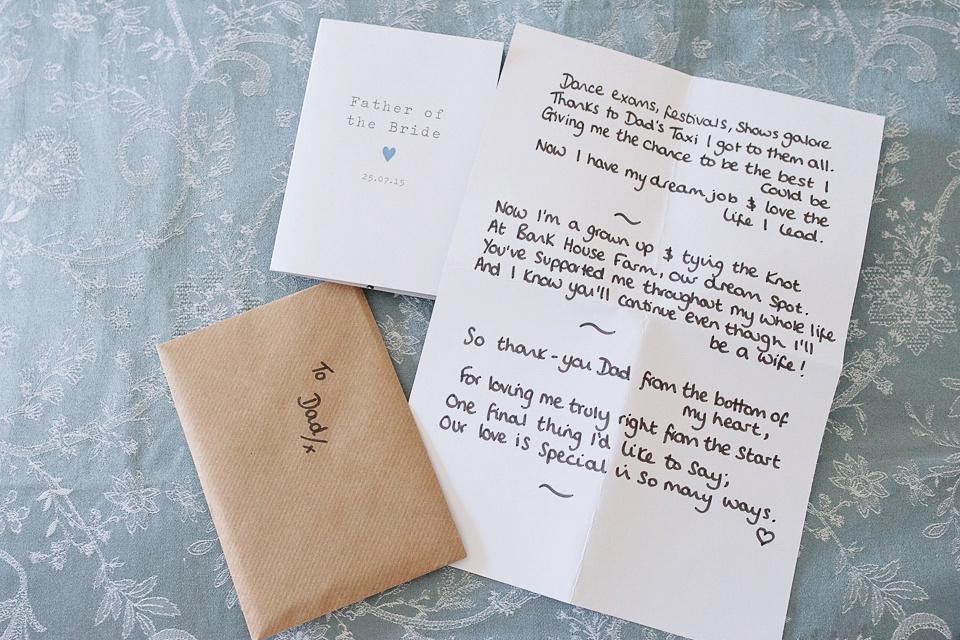 Father of
the Bride
25.07.15
To Dad/x
Dance exams, festivals, shows galore
Thanks to Dad's Taxi I got to them all.
Giving me the chance to be the best I
could be
Now I have my dream job & love the
life I lead.
~
Now I'm a grown up & tying the knot
At Bank House Farm, our dream spot.
You've supported me throughout my whole life
And I know you'll continue even though I'll
be a wife!
~
So thank-you Dad from the bottom of
my heart,
For loving me truly right from the start
One final thing I'd like to say;
Our love is special in so many ways.
~
♡